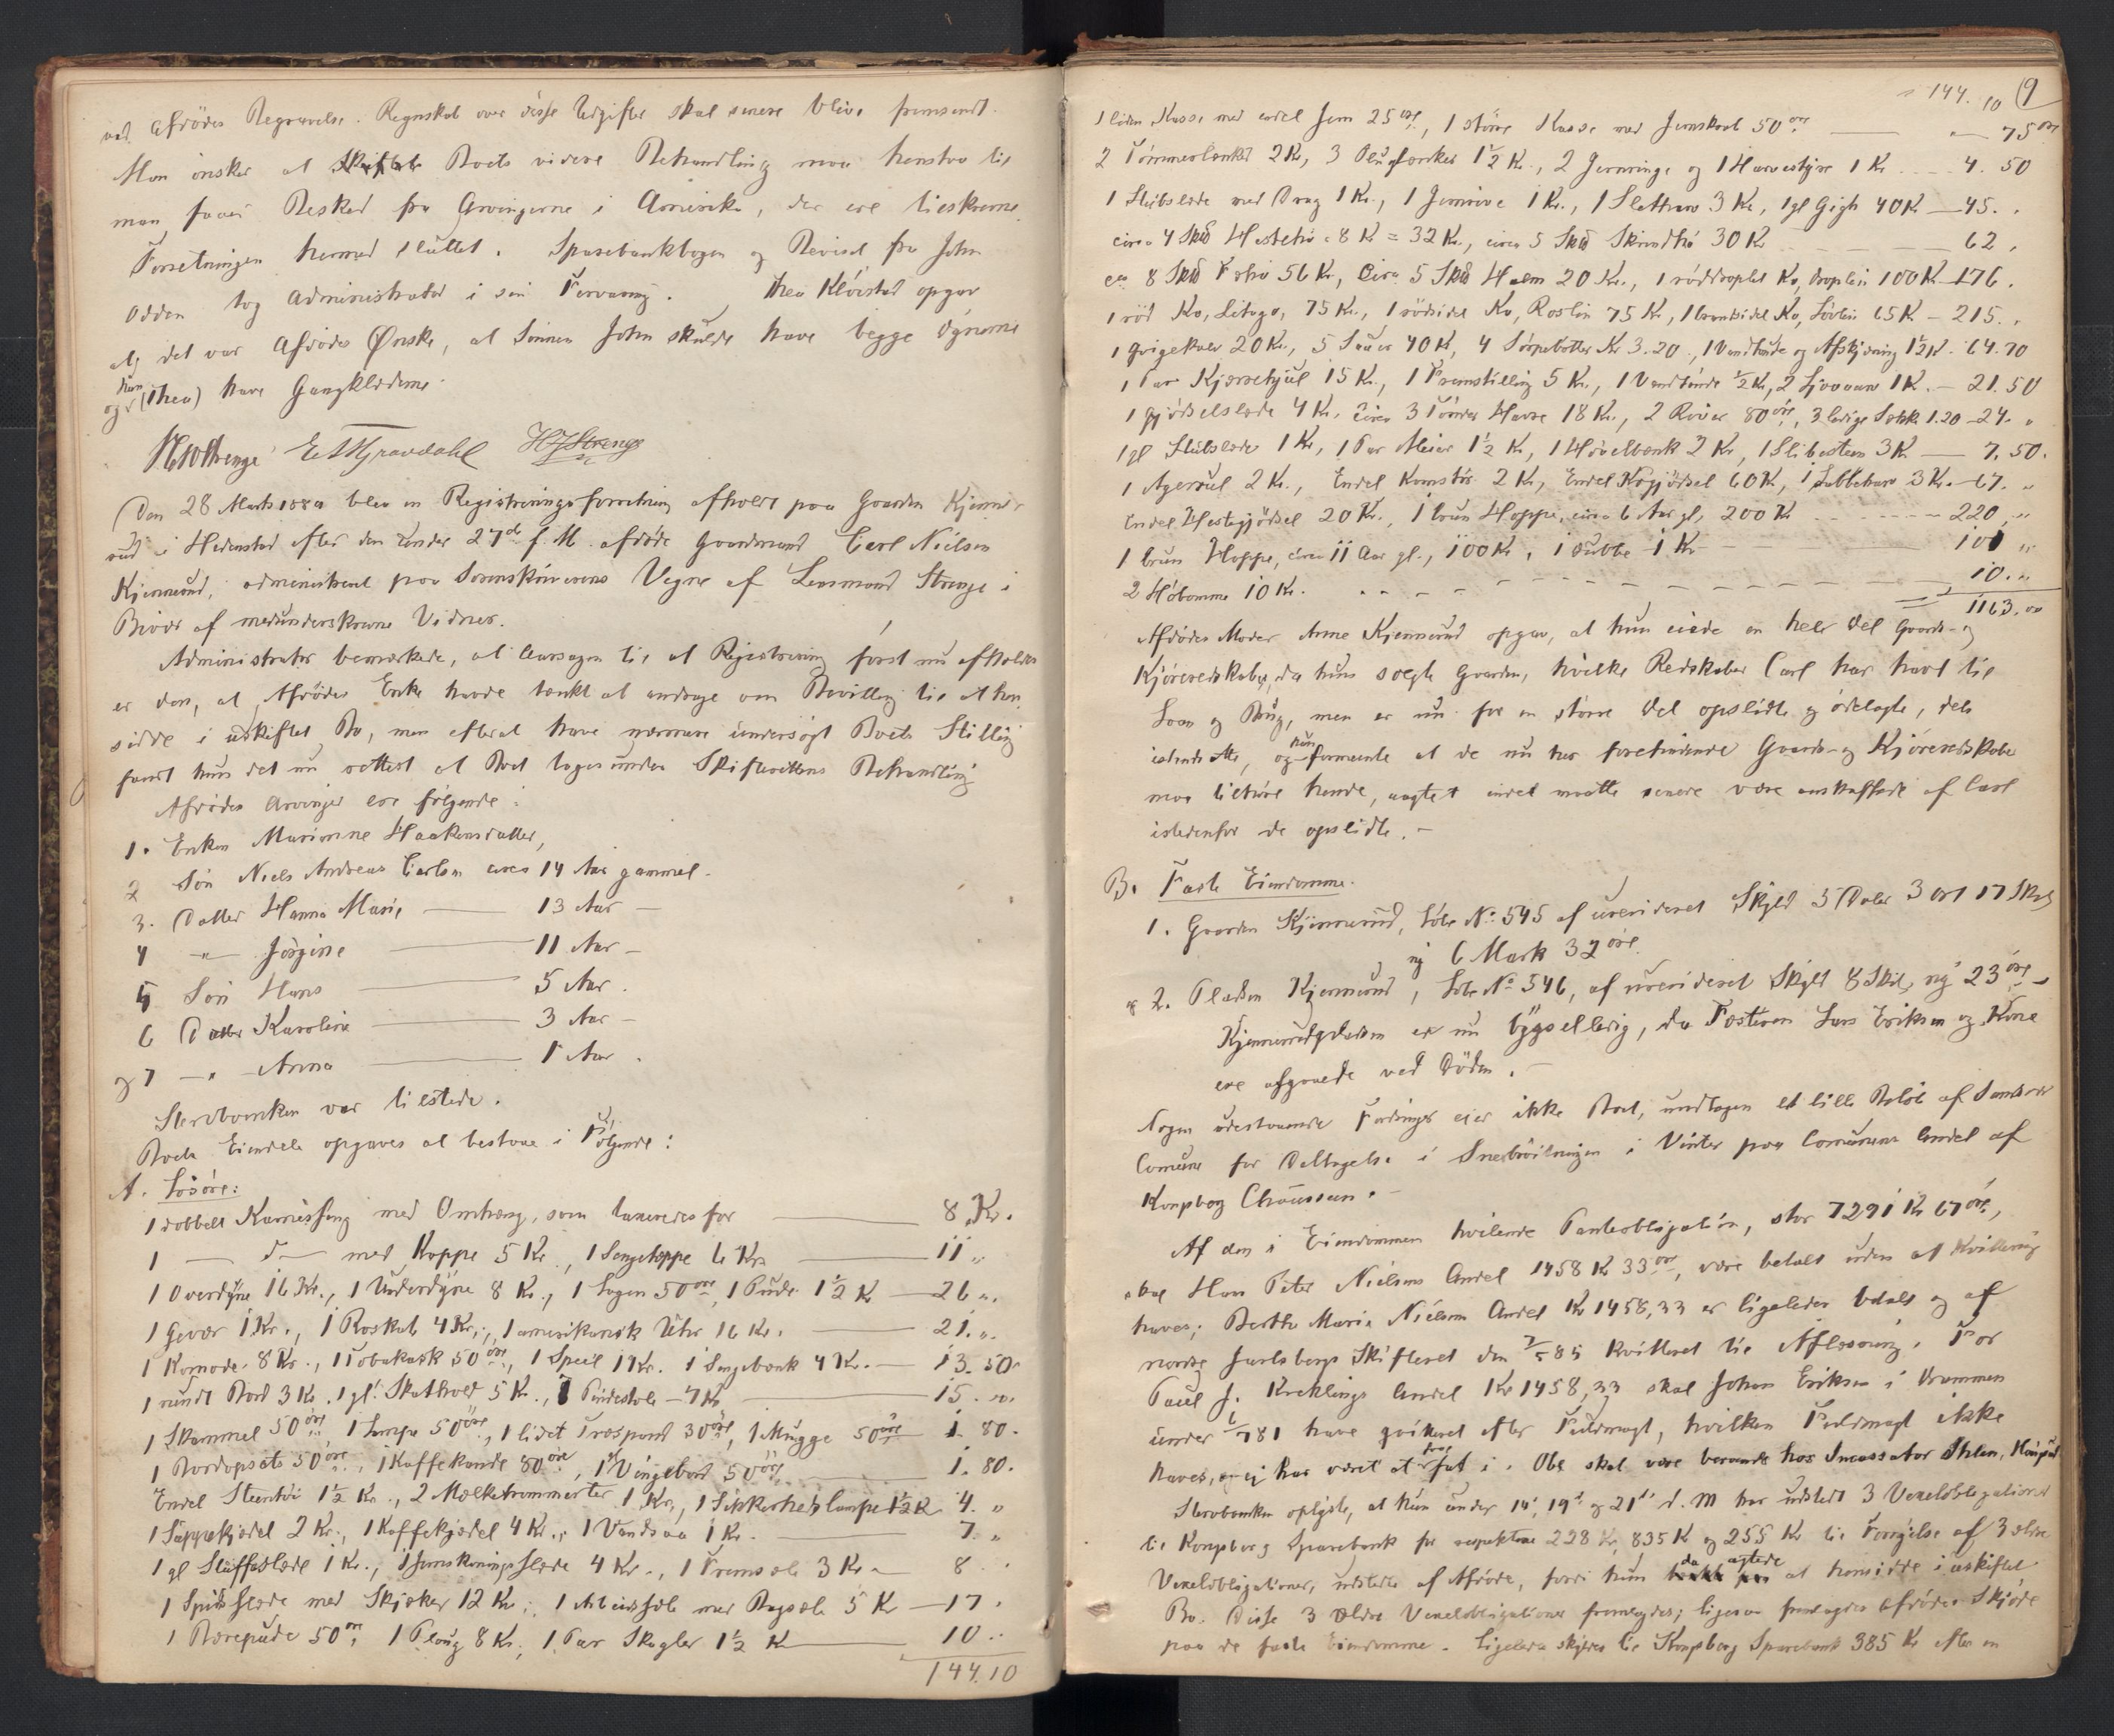 ved Afdødes Begravelse. Regnskab over disse Udgifter skal senere blive fremsendt.
Man ønsker at Boets videre Behandling maa henstaa til
man faaer Besked fra Arvingerne i Amerika, der ere tilskrevne.
Forretningen hermed sluttet. Sparebankbogen og Beviset fra John
Odden tog Administrator i sin Forvaring. Thea Kløvstad opgav
at det var Afdødes Ønske, at Sønnen John skulde have begge Dynerne
og hun (Thea) have Gangklæderne.
E. T. Gravdahl H J Strenge
Den 28 Marts 188 blev en Registreringsforretning afholdt paa Gaarden Kjenne-
rud i Hedenstad efter den under 27de f. M. afdøde Gaardmand Carl Nielsen
Kjennerud, administreret paa Sorenskriverens Vegne af Lensmand Strenge i
Bivær af medunderskrevne Vidner.
Administrator bemærkede, at Aarsagen til at Registrering først nu afholdes
er den, at Afdødes Enke havde tænkt at andrage om Bevilling til at hen-
sidde i uskiftet Bo, men efterat have nærmere undersøgt Boets Stilling
fandt hun det nu rettest at Boet toges under Skifterettens Behandling
Afdødes Arvinger ere følgende:
1. Enken Marianne Haakensdatter,
2 Søn Niels Andreas Carlsen circa 14 Aar gammel.
3. Datter Hanna Marie — 13 Aar —
4 —"— Jørgine — 11 Aar —
5 Søn Hans — 5 Aar.
6 Datter Karoline — 3 Aar —
og 7 —"— Anna — 1 Aar.
Stervboenken var tilstede.
Boets Eiendele opgaves at bestaae i Følgende:
A. Løsøre:
1 dobbelt Karnissseng med Omhæng, som taxeredes for — 8 Kr.
1 — d— med Kappe 5 Kr., 1 Sengeteppe 6 Kr. — 11 "
1 Overdyne 16 Kr., 1 Underdyne 8 Kr., 1 Lagen 50 øre, 1 Pude 1½ Kr — 26 ".
1 Gevær 1 Kr., 1 Roskab 4 Kr., 1 amerikansk Uhr 16 Kr. — 21. ".
1 Komode 8 Kr., 1 Tobakask 50 øre, 1 Speil 1 Kr. 1 Sengebænk 4 Kr. — 13.50
1 rundt Bord 3 Kr. 1 gl. Skathold 5 Kr., 7 Pindestole — 7 Kr — 15. ".
1 Skammel 50 øre 1 Lampe 50 øre, 1 lidet Træspand 30 øre, 1 Mugge 50 øre 1.80.
1 Bordopsats 50 øre, 1 Kaffekande 80 øre, 1 Vingebord 50 øre — 1.80.
Endel Steentøi 1½ Kr., 2 Mælketrommerter 1 Kr., 1 Sikkerhedslampe 1½ K 4. "
1 Suppekjedel 2 Kr., 1 Kaffekjedel 4 Kr., 1 Vandsaa 1 Kr. — 7. "
1 gl Sluffeslæde 1 Kr., 1 Jernskoningsslæde 4 Kr., 1 Fremsæle 3 Kr — 8 .
1 Spidsslæde med Skjæker 12 Kr., 1 Arbeidssele med Bogsæle 5 Kr — 17.
1 Bærepude 50 øre, 1 Ploug 8 Kr., 1 Par Skagler 1½ K — 10.
144.10
144.10 9
1 liden Kasse med endel Jern 25 øre, 1 større Kasse med Jernskrab 50 øre — 75 øre
2 Tømmerlænker 2 Kr, 3 Plugflænker 1½ Kr., 2 Jernringe og 1 Harvestyre 1 Kr .... 4.50
1 Stubslæde med Drag 1 Kr., 1 Jernrive 1 Kr., 1 Sletharv 3 Kr, 1 gl Gigh 40 K — 45..
circa 4 Skpd Hestehø a 8 Kr = 32 Kr., circa 5 Skpd Skrindhø 30 Kr — 62.
ca 8 Skpd Fehø 56 Kr, Circa 5 Skpd Halm 20 Kr., 1 røddroplet Ko, Droplin 100 Kr — 176.
1 rød Ko, Litago, 75 Kr., 1 rødsidet Ko, Roslin 75 Kr, 1 brandsidet Ko, Løvlin 65 K — 215..
1 Qvigekalv 20 Kr., 5 Sauer 40 Kr, 4 Sørpebøtter Kr 3.20, 1 Vandtønde og Afskjæring 1½ Kr. 64.70
1 Par Kjærrehjul 15 Kr., 1 Fremstilling 5 Kr., 1 Vandtønde ½ Kr, 2 Ljaaer 1 K. — 21.50
1 Gjødselslæde 4 Kr. circa 3 Tønder Havre 18 Kr., 2 River 80 øre, 3 ledige Sække 1.20 — 24. "
1 gl Stubslæde 1 Kr, 1 Par Meier 1½ Kr, 1 Høvelbænk 2 Kr, 1 Slibesten 3 Kr — 7.50.
1 Agerrul 2 Kr., Endel Kornstør 2 Kr, Endel Kogjødsel 60 Kr, 1 Labbeharv 3 Kr. — 67. "
Endel Hestegjødsel 20 Kr., 1 brun Hoppe, circa 6 Aar gl, 200 Kr — 220 "
1 brun Hoppe, circa 11 Aar gl., 100 Kr, 1 Stubbe 1 Kr — 101 "
2 Høbomme 10 Kr. — 10. "
1163.00
Afdødes Moder Anne Kjennerud opgav, at hun eiede en heel Del Gaards- og
Kjøreredskaber, da hun solgte Gaarden, hvilke Redskaber Carl har havt til
Laan og Brug, men er nu for en større Del opslidte og ødelagte, dels
istandsatte, og hun formeente at de nu her forefindende Gaards- og Kjøreredskaber
maa tilhøre hende, uagtet endel maatte senere være anskaffede af Carl
istedenfor de opslidte. —
B. Faste Eiendomme.
1. Gaarden Kjennerud, Løbe No 545 af urevideret Skyld 5 Daler 3 ort 17 Skil
ny 6 Mark 32 øre.
og 2. Pladsen Kjennerud, Løbe No 546, af urevideret Skyld 8 Skil, ny 23 øre.
Kjennerudpladsen er nu bygselledig, da Fæsteren Lars Eriksen og Kone
ere afgaaede ved Døden. —
Nogen udestaaende Fordringer eier ikke Boet, undtagen et lille Beløb af Sandsvær
Comune for Deltagelse i Snebrøitningen i Vinter paa Comunens Andel af
Kongsberg Chausseen. —
Af den i Eiendommen hvilende Panteobligation, stor 7291 Kr 67 øre,
skal Hans Peter Nielsens Andel 1458 Kr 33 øre, være betalt uden at Kvittering
haves; Berthe Marie Nielsens Andel Kr 1458,33 er ligeledes betalt og af
nordre Jarlsbergs Skifteret den 7/5 85 kvitteret til Aflæsning. For
Paul J. Kreklings Andel Kr 1458,33 skal Johan Eriksen i Drammen
under 1/7 81 have qvitteret efter Fuldmagt, hvilken Fuldmagt ikke
haves, ei har været at faa fat i. Obl. skal være beroende hos Incassator Ihlen,
Stervboenken oplyste, at hun under 14', 19de og 21de d. M har udstedt 3 Vexelobligationer
til Kongsberg Sparebank for respektive 228 Kr, 835 K og 255 Kr til Fornyelse af 3 ældre
Vexelobligationer, udstedte af Afdøde, fordi hun da agtede at hensidde i uskiftet
Bo. Disse 3 ældre Vexelobligationer fremlagdes; ligesaa fremlagdes Afdødes Skjøde
paa de faste Eiendomme. Ligeledes skyldes til Kongsberg Sparebank 385 Kr efter en